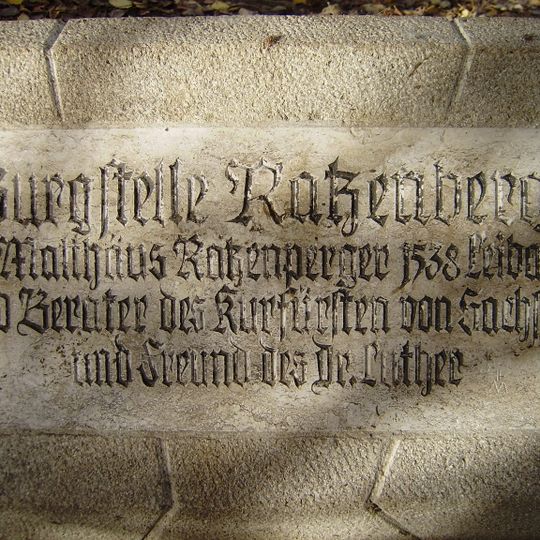 Burgstelle Ratzenberg
Matthäus Ratzenperger 1538 Leib
Berater des Kurfürsten von Sachs
und Freund des Dr. Luther